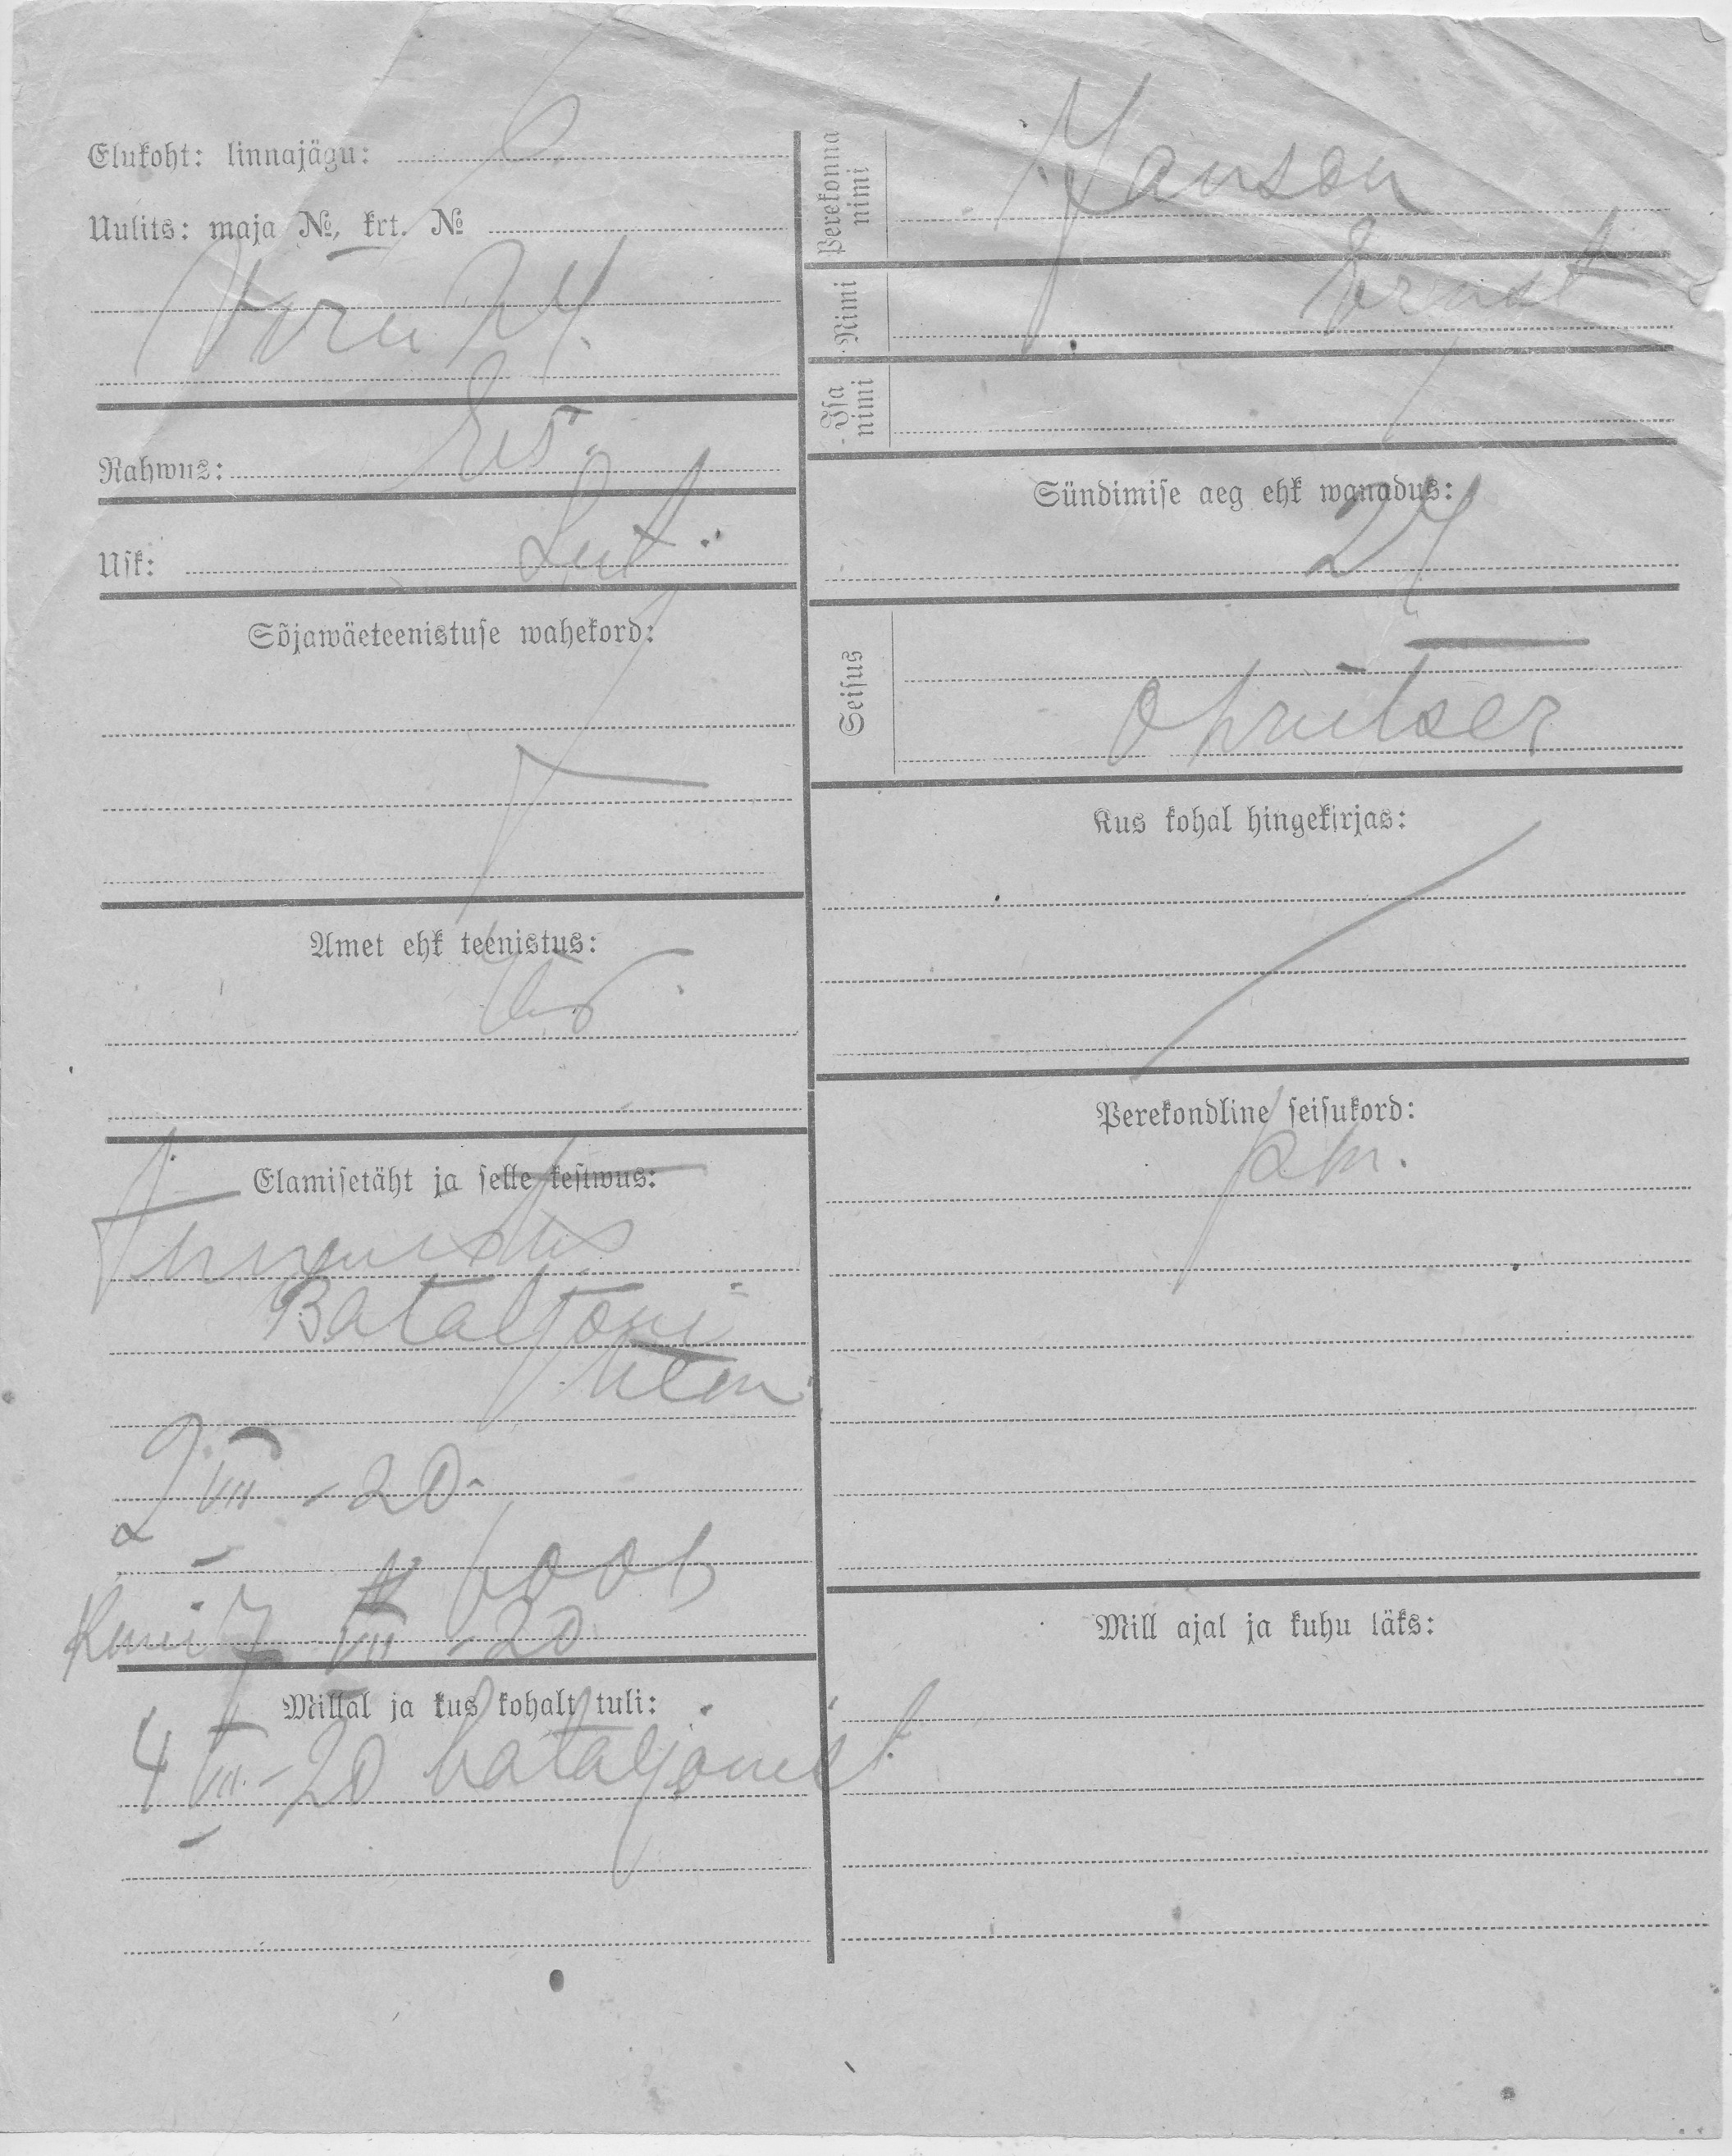 Elukoht: linnajägu:
Uulits: maja №, krt. №
Võru 24.
Rahwus: Ees.
Usk: Lut.
Sõjawäeteenistuse wahekord:
Amet ehk teenistus:
Elamisetäht ja selle kestwus:
Tunnistus
Bataljoni
ülem
VIII - 20
Kuni 7 VIII - 20
Millal ja kus kohalt tuli:
4 VII - 20 bataljonist
Perekonna nimi
Janson
Nimi
Ernst
Isa nimi
Sündimise aeg ehk wanadus:
24
Seisus
Ohvitser
Kus kohal hingekirjas:
Perekondline seisukord:
Mill ajal ja kuhu läks: